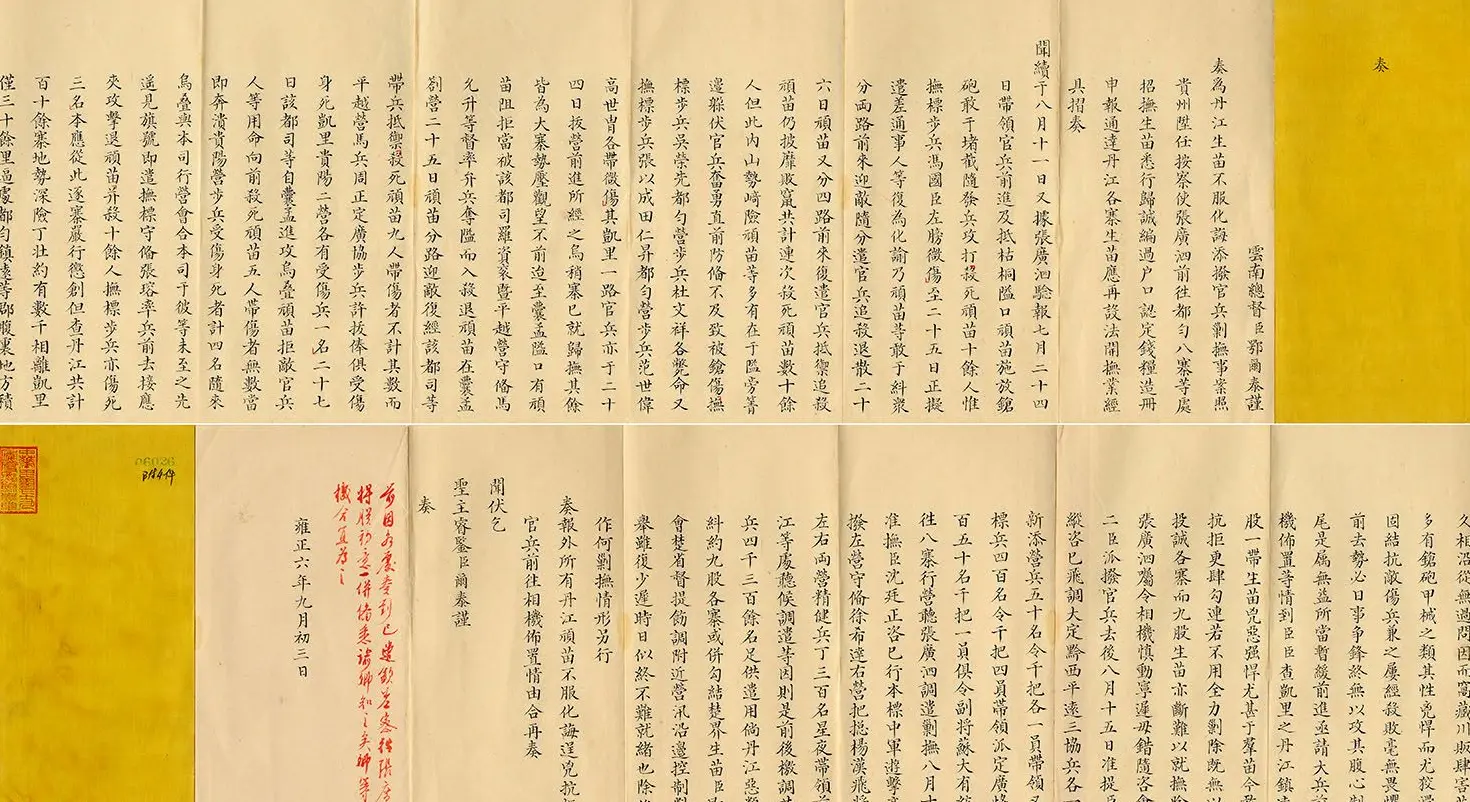 奏
雲南總督臣鄂爾泰謹
奏為丹江生苗不服化誨添撥官兵剿撫事案照
貴州陞任按察使張廣泗前往都勻八寨等處
招撫生苗悉行歸誠編過戶口認定錢糧造冊
申報通達丹江各寨生苗應再設法開撫業經
具摺奏
聞續于八月十一日又據張廣泗驗報七月二十四
日帶領官兵前進及抵枯桐隘口頑苗施放鎗
砲敢于堵截隨發兵攻打殺死頑苗十餘人惟
撫標步兵馮國臣左膀微傷至二十五日正擬
遣差通事人等復為化諭乃頑苗等敢于糾衆
分両路前來迎敵隨分遣官兵追殺退散二十
六日頑苗又分四路前來復遣官兵抵禦追殺
頑苗仍披靡敗竄共計連次殺死頑苗數十餘
人但此內山勢﨑險頑苗等多有在于隘旁箐
邊躲伏官兵奮勇直前防備不及致被鎗傷撫
標步兵吳榮先都勻營步兵杜文祥各斃命又
撫標步兵張以成田仁昇都勻營步兵范世偉
高世胄各帶微傷其凱里一路官兵亦于二十
四日拔營前進所經之烏稍寨已就歸撫其餘
皆為大寨勢壓觀望不前迨至囊孟隘口有頑
苗阻拒當被該都司羅資衮暨平越營守備馬
允升等督率升兵奪隘而入殺退頑苗在囊孟
劄營二十五日頑苗分路迎敵復經該都司等
帶兵抵禦殺死頑苗九人帶傷者不計其數而
平越營馬兵周正定廣協步兵許拔俸俱受傷
身死凱里貴陽二營各有受傷兵一名二十七
日該都司等自囊孟進攻烏叠頑苗拒敵官兵
人等用命向前殺死頑苗五人帶傷者無數當
即奔潰貴陽營步兵受傷身死者計四名隨來
烏叠與本司行營會合本司于彼等未至之先
遥見旗號即遣撫標守備張瑢率兵前去接應
夾攻擊退頑苗并殺十餘人撫標步兵亦傷死
三名本應從此逐寨嚴行懲創但查丹江共計
百十餘寨地勢深險丁壯約有數千相離凱里
僅三十餘里逼處都勻鎮遠等郡腹裏地方積
久相沿從無過問因而窩藏川販肆害
多有鎗砲甲械之類其性兇悍而尤狡
因結抗敵傷兵兼之屢經殺敗毫無畏懼
前去勢必日事爭鋒終無以攻其腹心
尾是属無益所當暫緩前進亟請大兵
機佈置等情到臣臣查凱里之丹江鎮
股一帶生苗兇惡强悍尤甚于羣苗今
抗拒更肆勾連若不用全力剿除既無以
投誠各寨而九股生苗亦斷難以就撫除
張廣泗屬令相機慎動寧遲毋錯隨咨會
二臣派撥官兵去後八月十五日准提臣
縱咨已飛調大定黔西平遠三協兵各一
新添營兵五十名令千把各一員帶領又
標兵四百名令千把四員帶領派定廣
百五十名千把一員俱令副將蘇大有統
徃八寨行營聽張廣泗調遣剿撫八月十
准撫臣沈廷正咨已行本標中軍遊擊
撥左營守備徐希達右營把揔楊漢飛將
左右両營精健兵丁三百名星夜帶領前
江等處聽候調遣等因則是前後檄調
兵四千三百餘名足供遣用倘丹江惡
糾約九股各寨或併勾結楚界生苗臣
會楚省督提飭調附近營汛沿邊控制
舉雖復少遲時日似終不難就緒也除
作何剿撫情形另行
奏報外所有丹江頑苗不服化誨逞兇抗
官兵前往相機佈置情由合再奏
聞伏乞
聖主睿鑒臣爾泰謹
奏
機合宜為之
雍正六年九月初三日
06036